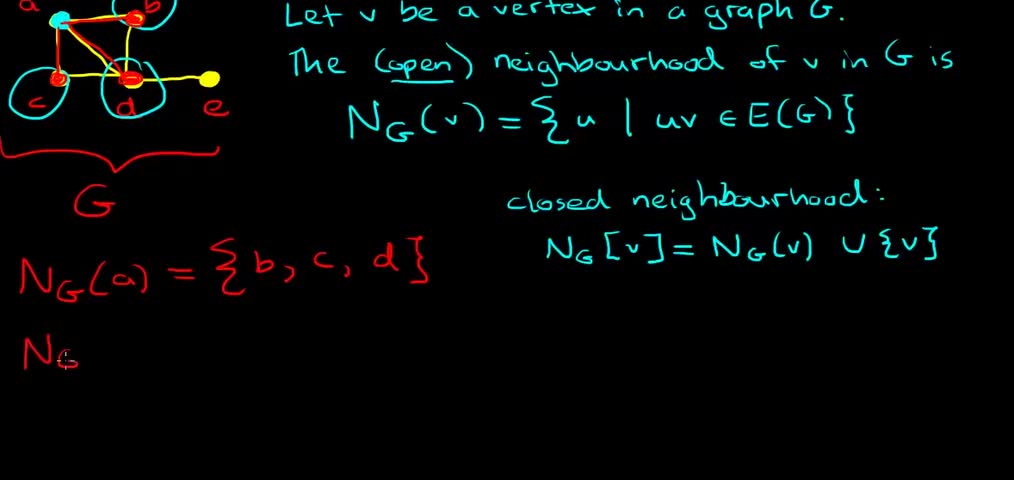 a b
c d e
G
Let v be a vertex in a graph G.
The (open) neighbourhood of v in G is
N_G(v) = { u | uv ∈ E(G) }
closed neighbourhood:
N_G[v] = N_G(v) ∪ {v}
N_G(a) = { b, c, d }
N_G